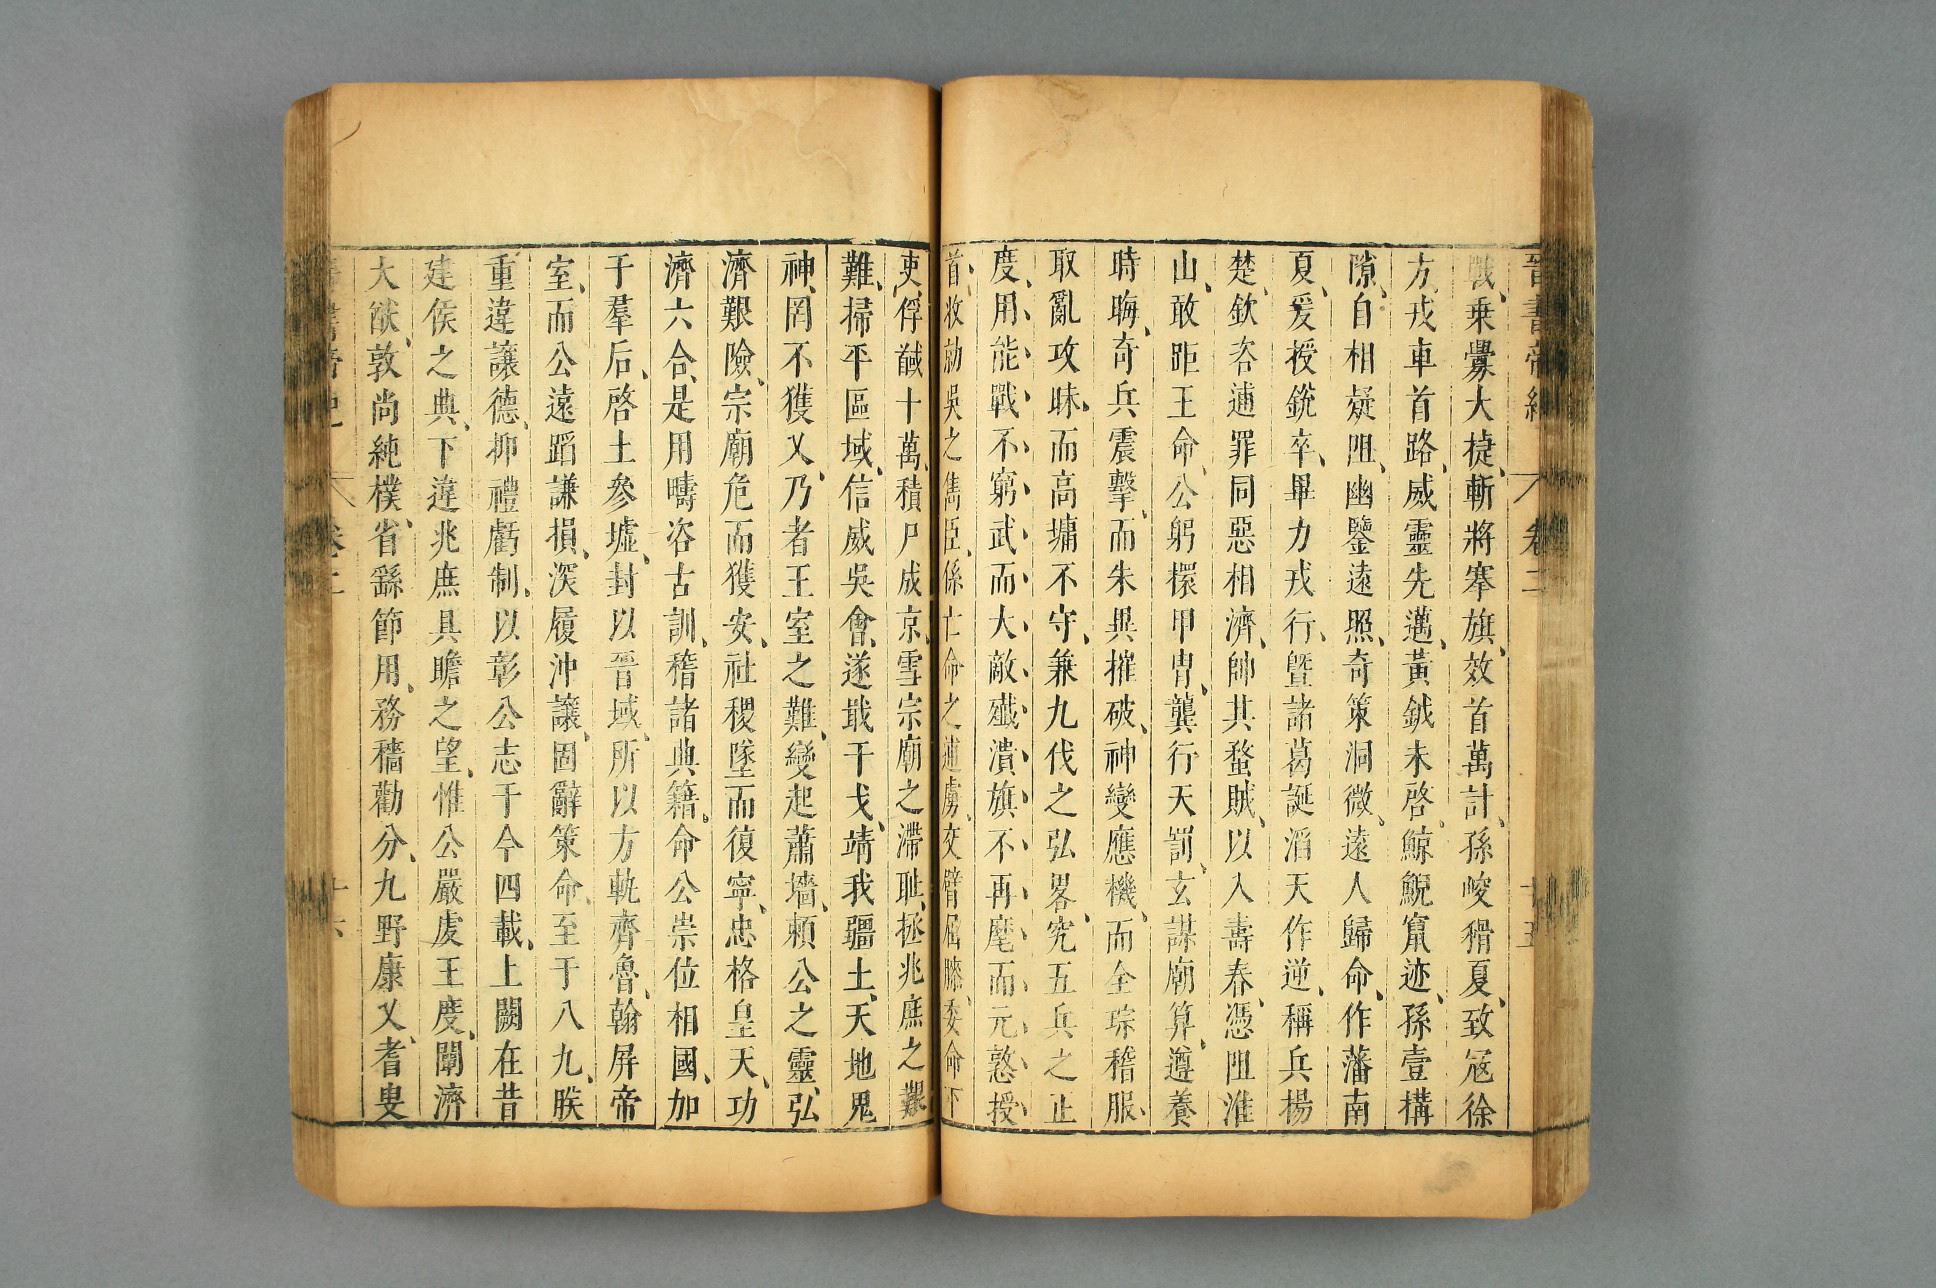 晉書帝紀 卷二 十五
戰乗釁大㨗斬將搴旗效首萬計孫峻猾夏致寇徐
方戎車首路威靈先邁黃鉞未啓鯨鯢竄迹孫壹構
隙自相疑阻幽鑒遠照奇策洞微遠人歸命作藩南
夏爰授銳卒畢力戎行曁諸葛誕滔天作逆稱兵楊
楚欽咨逋罪同惡相濟帥其蝥賊以入壽春憑阻淮
山敢距王命公躬擐甲冑龔行天罰玄謀廟算遵養
時晦奇兵震擊而朱異摧破神變應機而全琮稽服
取亂攻昧而高墉不守兼九伐之弘畧究五兵之正
度用能戰不窮武而大敵殲潰旗不再麾而元憝授
首收勍吳之雋臣係亡命之逋虜交臂屈膝委命下
吏俘馘十萬積尸成京雪宗廟之滯耻拯兆庶之艱
難掃平區域信威吳會遂戢干戈靖我疆土天地鬼
神罔不獲乂乃者王室之難變起蕭墻賴公之靈弘
濟艱險宗廟危而獲安社稷墜而復寧忠格皇天功
濟六合是用疇咨古訓稽諸典籍命公崇位相國加
于羣后啓土參墟封以晉域所以方軌齊魯翰屏帝
室而公遠蹈謙損深履沖讓固辭策命至于八九朕
重違讓德抑禮虧制以彰公志于今四載上闕在昔
建侯之典下違兆庶具瞻之望惟公嚴虔王度闡濟
大猷敦尚純樸省繇節用務穡勸分九野康乂耆叟
晉書帝紀 卷二 十六